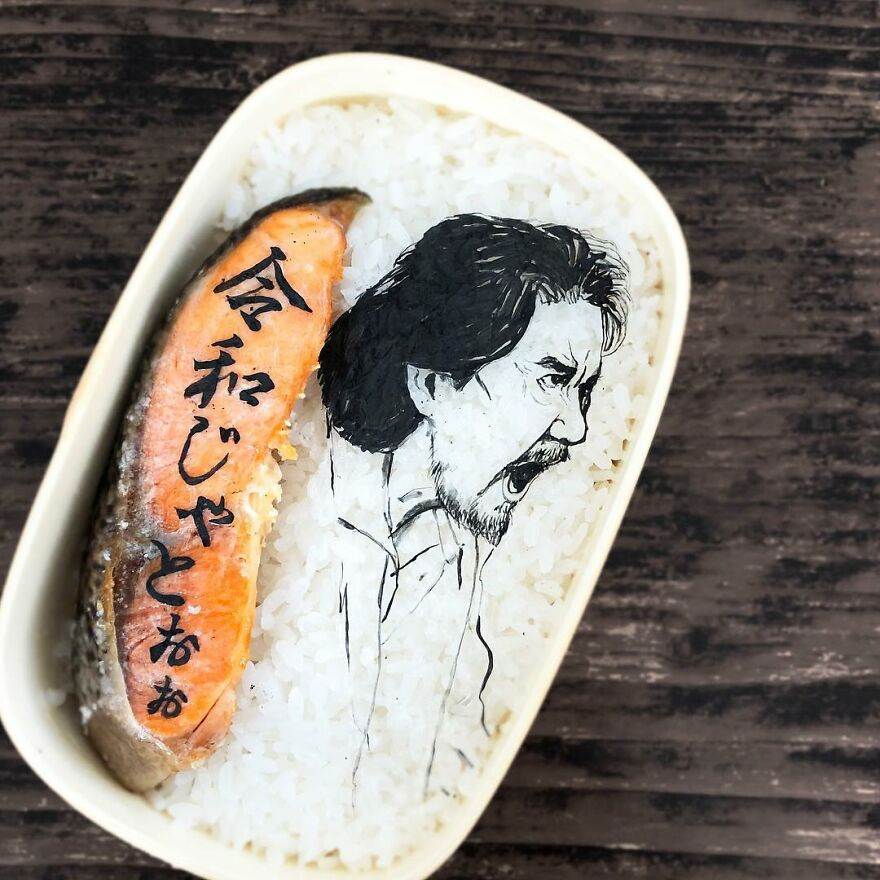 令和じゃとおぉ